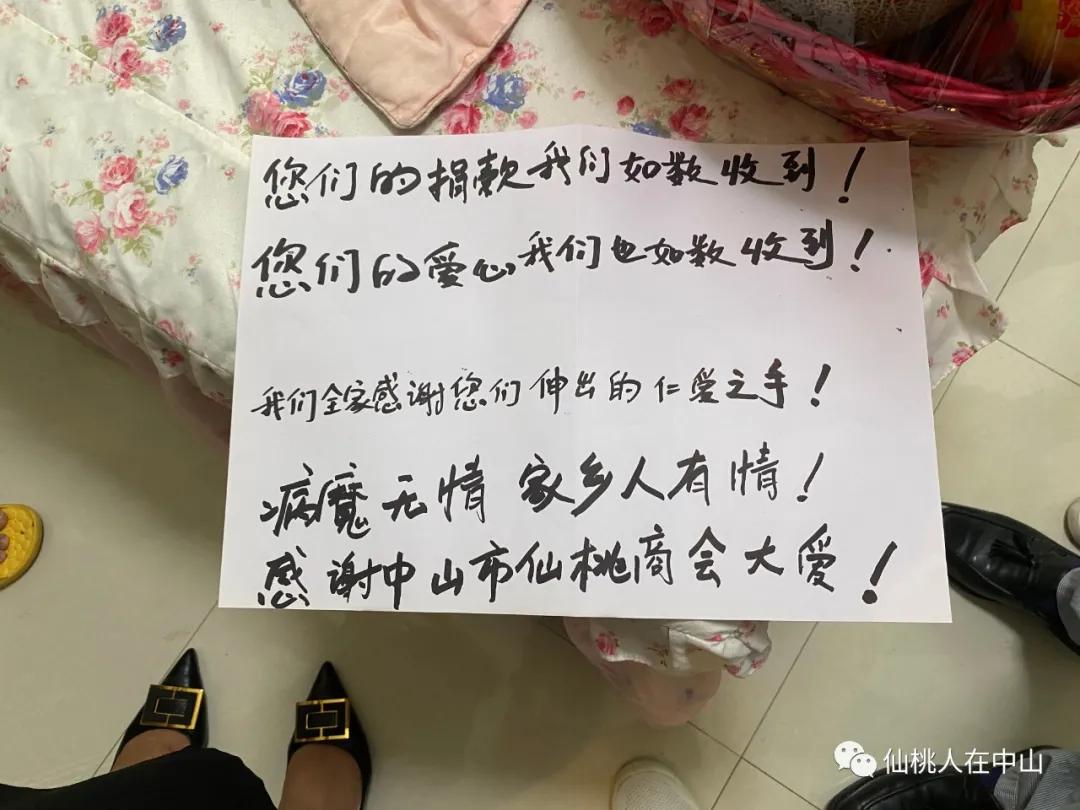 您们的捐款我们如数收到！
您们的爱心我们也如数收到！
我们全家感谢您们伸出的仁爱之手！
病魔无情 家乡人有情！
感谢中山市仙桃商会大爱！
仙桃人在中山